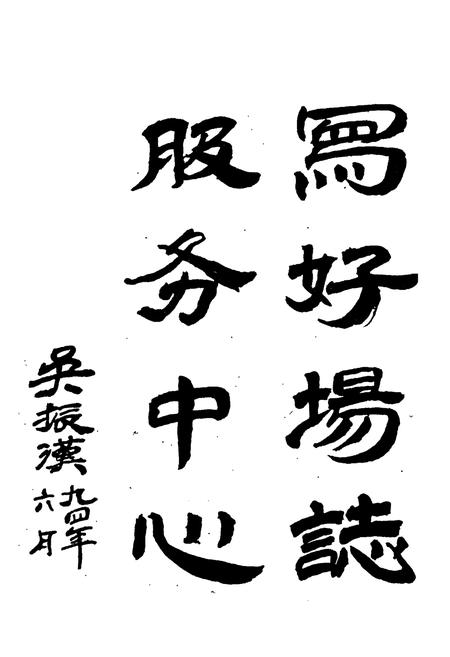 寫好場誌
服务中心
吴振漢
九四年
六月